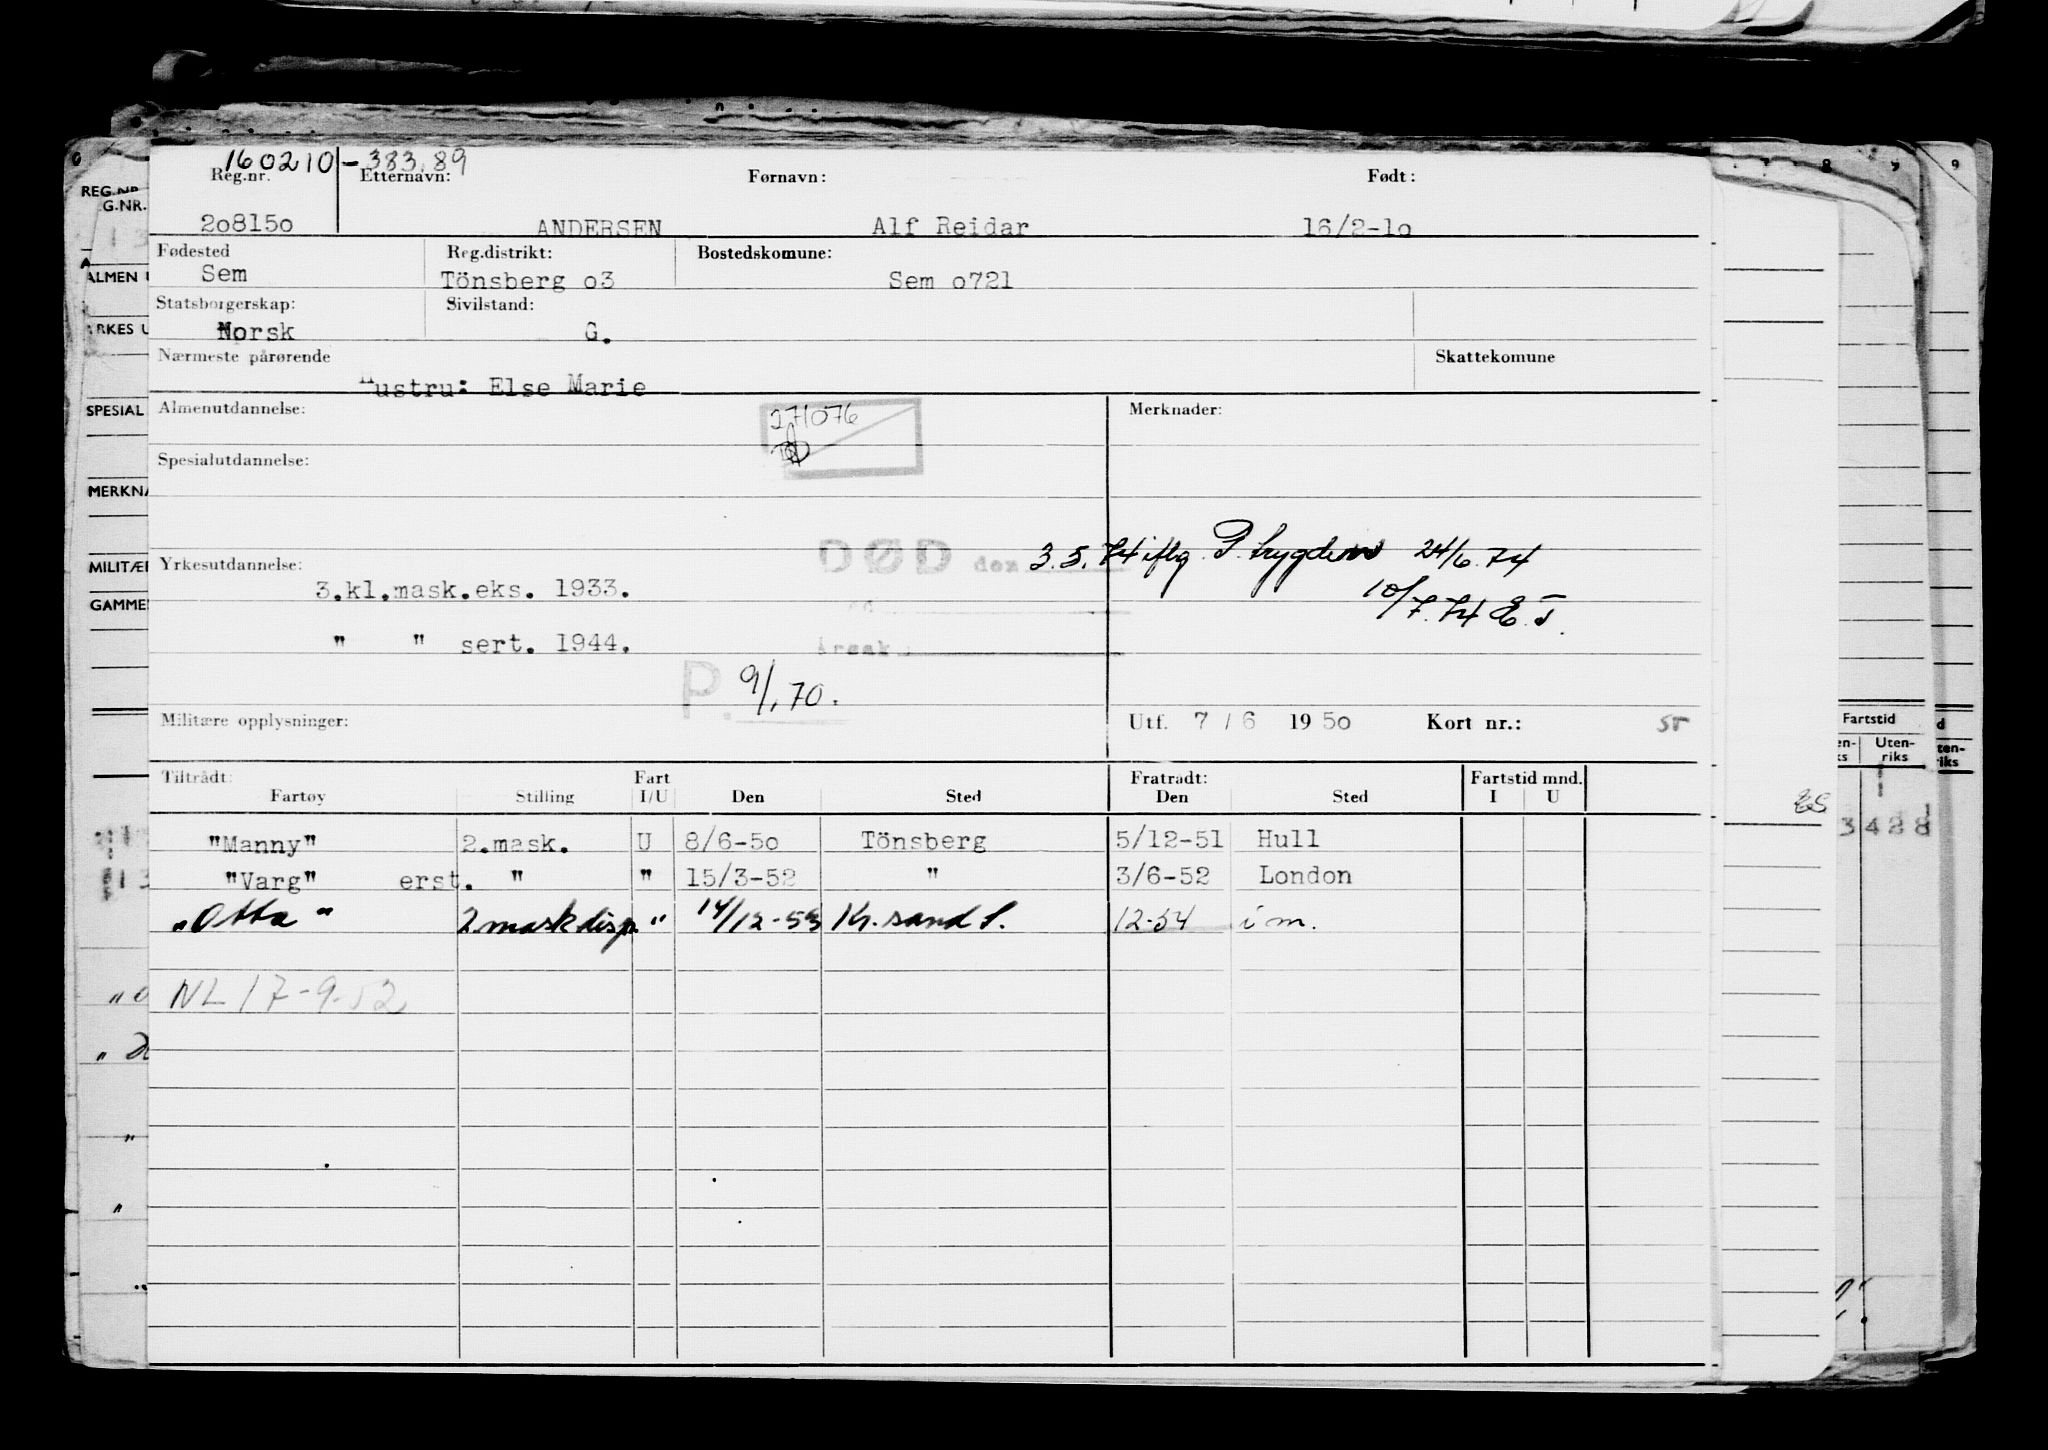 160210-383.89
Reg.nr. Etternavn: Førnavn: Født:
208150 ANDERSEN Alf Reidar 16/2-10
Fødested Reg.distrikt: Bostedskomune:
Sem Tönsberg o3 Sem o721
Statsborgerskap: Sivilstand:
Norsk G.
Nærmeste pårørende Skattekomune
Hustru: Else Marie
Almenutdannelse: Merknader:
271076
Spesialutdannelse:
DØD den 3.5.74 iflg. P. trygden 24/6.74
Yrkesutdannelse:
3.kl.mask.eks. 1933.
10/7.74
" " sert. 1944.
årsak
P. 9/1.70.
Militære opplysninger: Utf. 7 / 6 1950 Kort nr.:
Tiltrådt: Fart Fratrådt: Fartstid mnd.
Fartøy Stilling I/U Den Sted Den Sted I U
"Manny" 2.mask. U 8/6-50 Tönsberg 5/12-51 Hull
"Varg" erst. " " 15/3-52 " 3/6-52 London
"Otta" 2 mask disp. " 14/12-53 Kr.sand S. 12-54 i m.
NL 17-9-52
REG.NR.
G.NR.
ALMEN U
ARKES U
SPESIAL
MERKNA
MILITÆR
GAMME
Fartstid
Uten-
riks
3 428